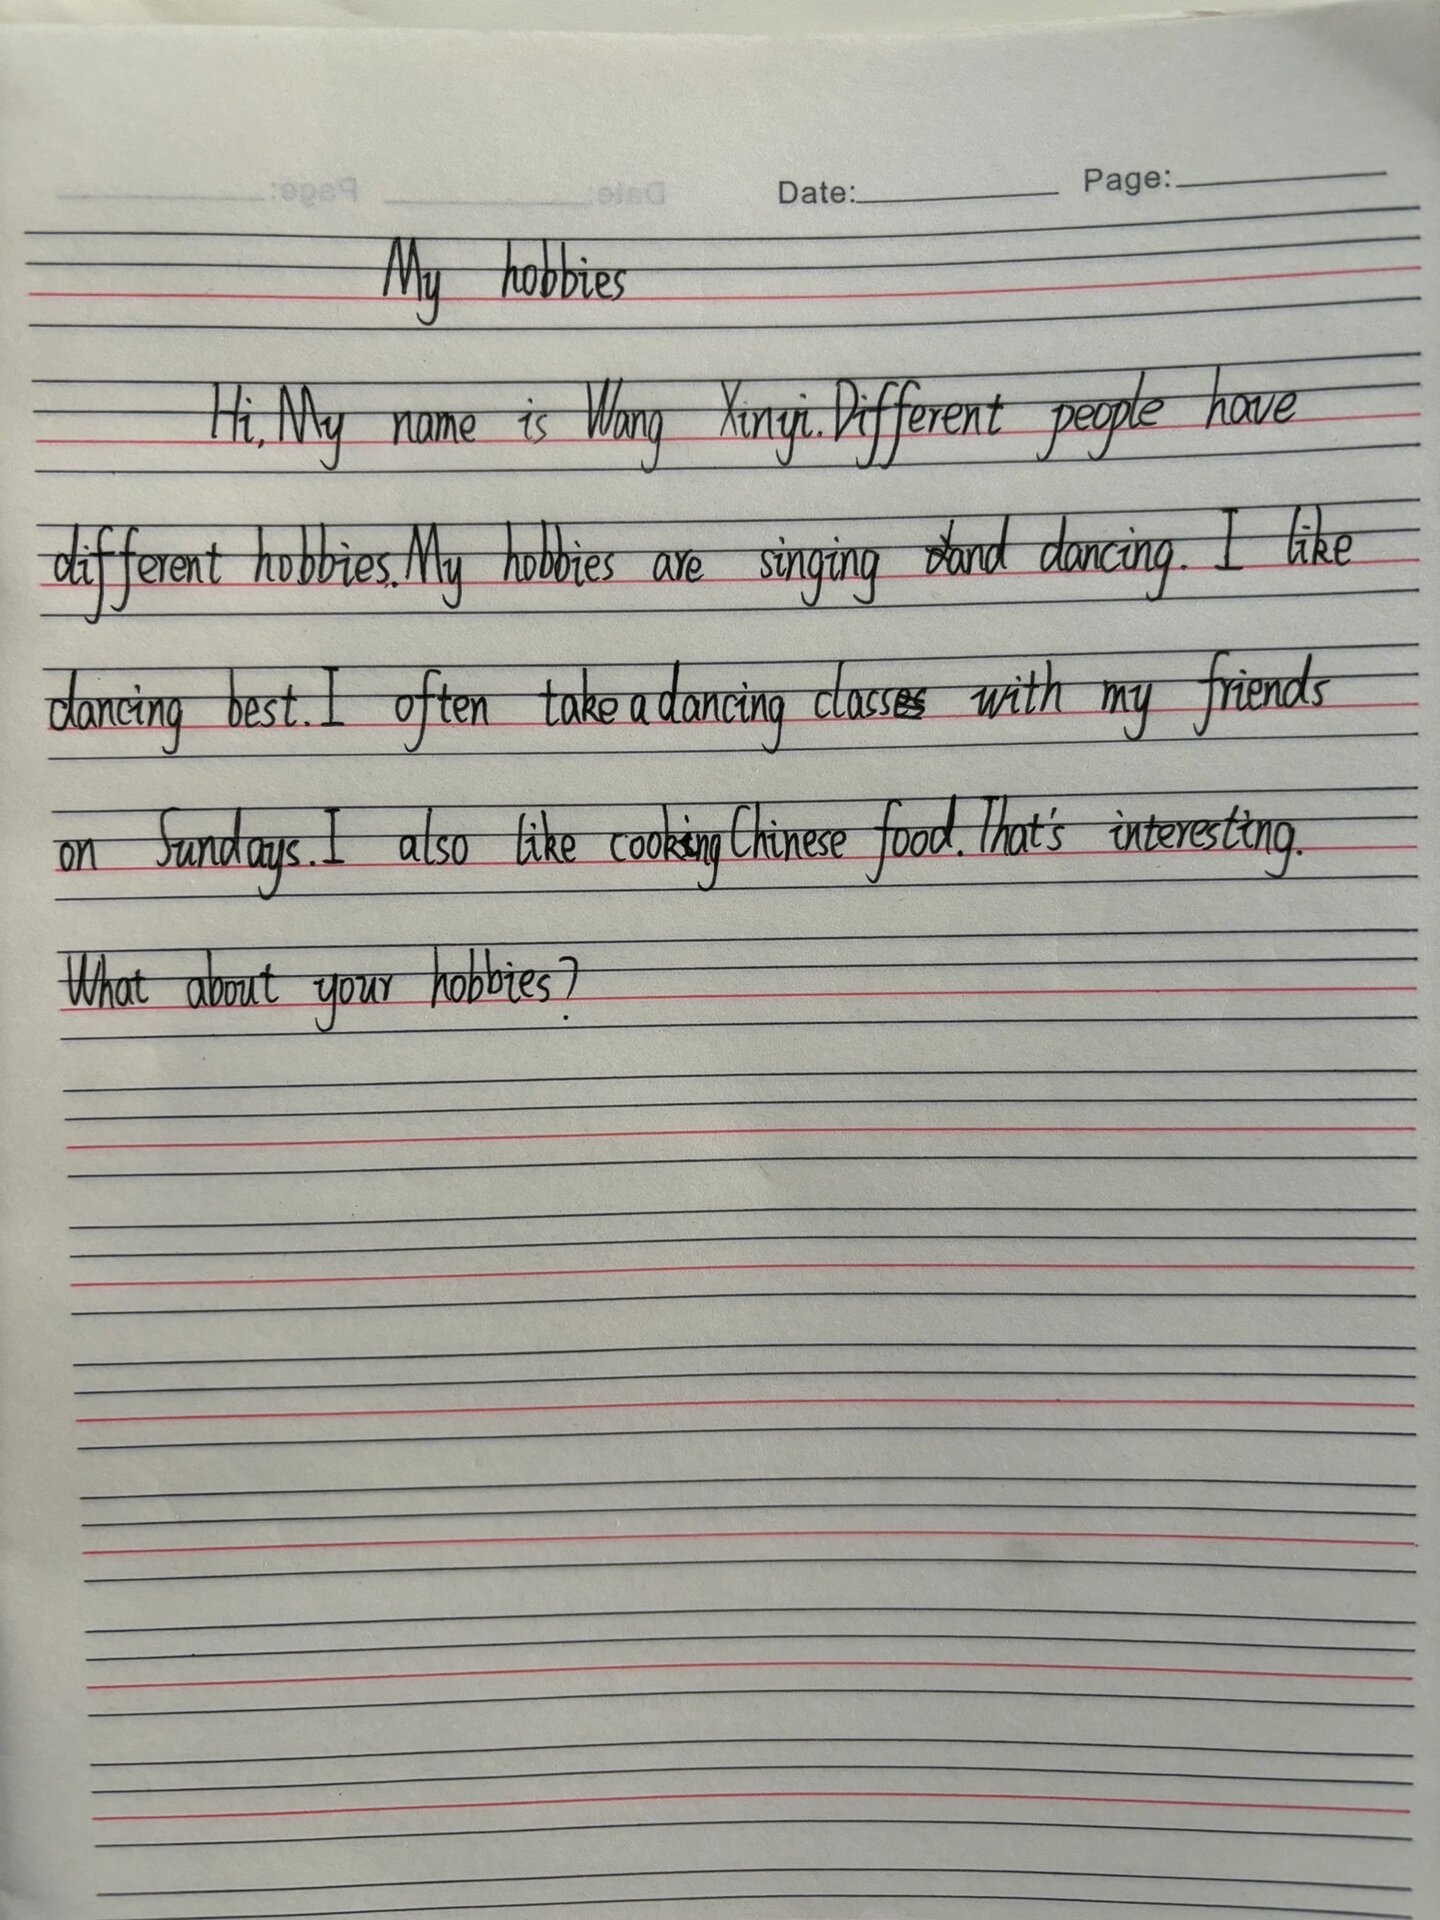 Date: Page:
My hobbies
Hi, My name is Wang Xinyi. Different people have
different hobbies. My hobbies are singing and dancing. I like
dancing best. I often take a dancing classes with my friends
on Sundays. I also like cooking Chinese food. That's interesting.
What about your hobbies?